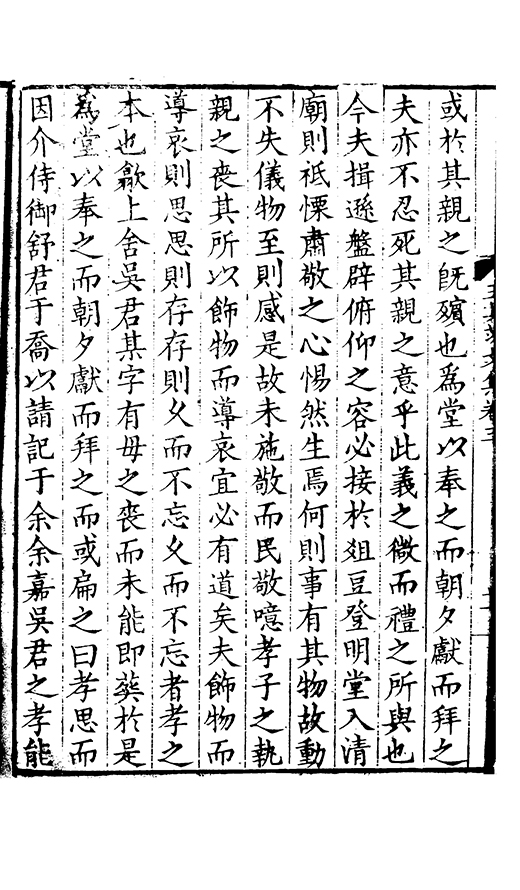 或於其親之旣殯也為堂以奉之而朝夕獻而拜之
夫亦不忍死其親之意乎此義之微而禮之所與也
今夫揖遜盤辟俯仰之容必接於俎豆登明堂入清
廟則祗慄肅敬之心惕然生焉何則事有其物故動
不失儀物至則感是故未施敬而民敬噫孝子之執
親之喪其所以飾物而導哀宜必有道矣夫飾物而
導哀則思思則存存則久而不忘久而不忘者孝之
本也歙上舍吳君某字有母之喪而未能即葬於是
為堂以奉之而朝夕獻而拜之而或扁之曰孝思而
因介侍御舒君于喬以請記于余余嘉吳君之孝能